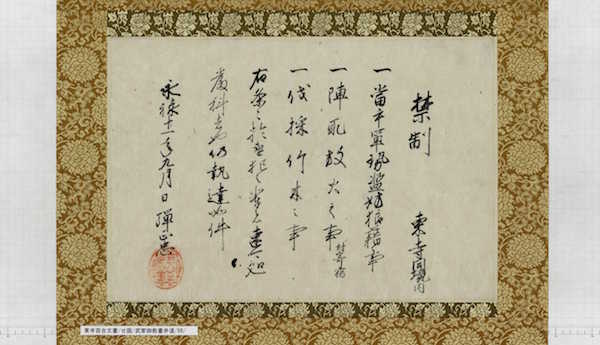 禁制 東寺同境内
一當手軍勢濫妨狼藉事
一陣取放火之事 付寄宿
一伐採竹木之事
右条々於違犯之輩者速可処
厳科者也仍執達如件
永禄十一年九月日 弾正忠
東寺百合文書/せ函/武家御教書并達/